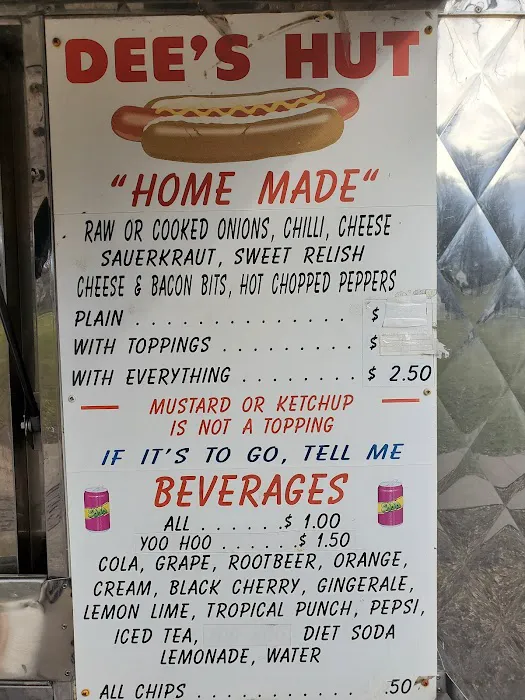 DEE'S HUT
"HOME MADE"
RAW OR COOKED ONIONS, CHILLI, CHEESE
SAUERKRAUT, SWEET RELISH
CHEESE & BACON BITS, HOT CHOPPED PEPPERS
PLAIN . . . . . . . . . . . . . . . $
WITH TOPPINGS . . . . . . . . . $
WITH EVERYTHING . . . . . . . . $ 2.50
MUSTARD OR KETCHUP
IS NOT A TOPPING
IF IT'S TO GO, TELL ME
BEVERAGES
ALL . . . . . . $ 1.00
YOO HOO . . . . . . $ 1.50
COLA, GRAPE, ROOTBEER, ORANGE,
CREAM, BLACK CHERRY, GINGERALE,
LEMON LIME, TROPICAL PUNCH, PEPSI,
ICED TEA, DIET SODA
LEMONADE, WATER
ALL CHIPS . . . . . . . . . . . .50